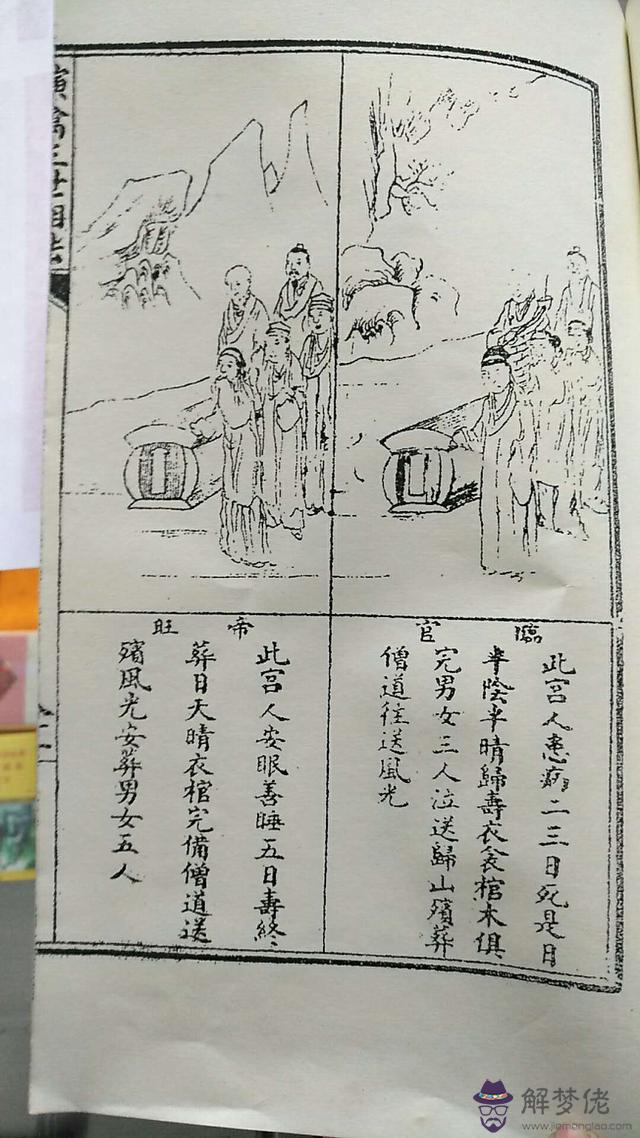 演禽三世相法
臨官
此宮人患病二三日死是日
半陰半晴歸壽衣衾棺木俱
完男女三人泣送歸山殯葬
僧道往送風光
帝旺
此宮人安眠善睡五日壽終
葬日天晴衣棺完備僧道送
殯風光安葬男女五人
解梦佬
www.jiemenglao.com